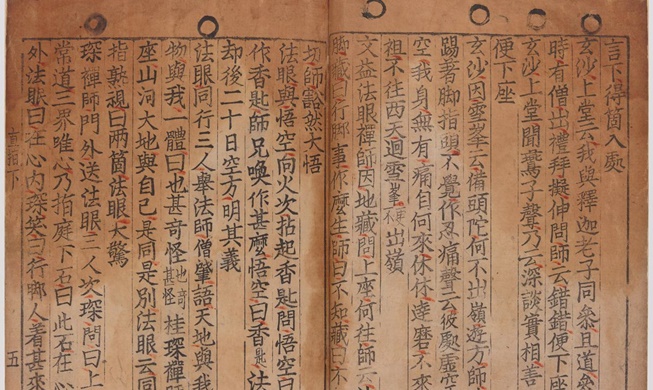 言下得箇入處
玄沙上堂云我與釋迦老子同叅且道叅
時有僧出禮拜擬伸問師云錯錯便下座
玄沙上堂聞鷰子聲乃云深談實相善
便下座
玄沙因雪峯云備頭陀何不出嶺遊方師
踢着脚指頭不覺作忍痛聲云彼虛空
空我身無有痛自何來休休達磨不來
祖不往西天迴雪峯不出嶺
文益法眼禪師因地藏問上座何往師云
脚藏曰行脚事作麽生師曰不知藏曰不
切師豁然大悟
法眼與悟空向火次拈起香匙問悟空曰
作香匙師兄喚作甚麽悟空曰香匙法
却後二十日空方明其義
法眼同行三人舉法師僧肇語天地與我
物與我一體曰也甚奇怪奇甚怪桂琛禪
座山河大地與自己是同是別法眼云同
指熟視曰兩箇法眼大驚
琛禪師門外送法眼三人次琛問曰上
常道三界唯心乃指庭下石曰此石在心
外法眼曰在心內琛笑曰行脚人着甚來
直指下 五